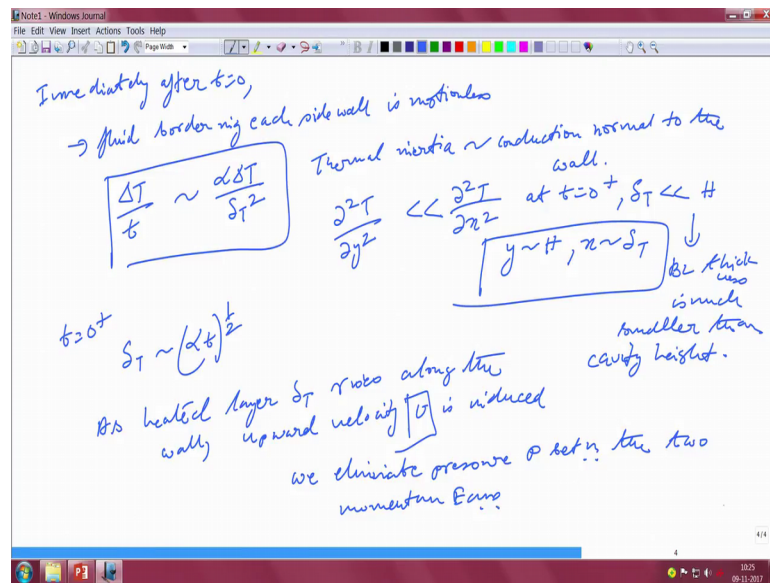 Note1 - Windows Journal
File Edit View Insert Actions Tools Help
Page Width
Immediately after t=0,
→ fluid bordering each sidewall is motionless
Thermal inertia ~ conduction normal to the
wall.
ΔT/t ~ αΔT/δ_T²
∂²T/∂y² << ∂²T/∂x² at t=0⁺, δ_T << H
y~H, x~δ_T
↓
BL thick
ness
is much
smaller than
cavity height.
t=0⁺
δ_T ~ (αt)^½
As heated layer δ_T rises along the
wall, upward velocity v is induced
we eliminate pressure P betn the two
momentum Eqns
4/4
4
10:25
09-11-2017